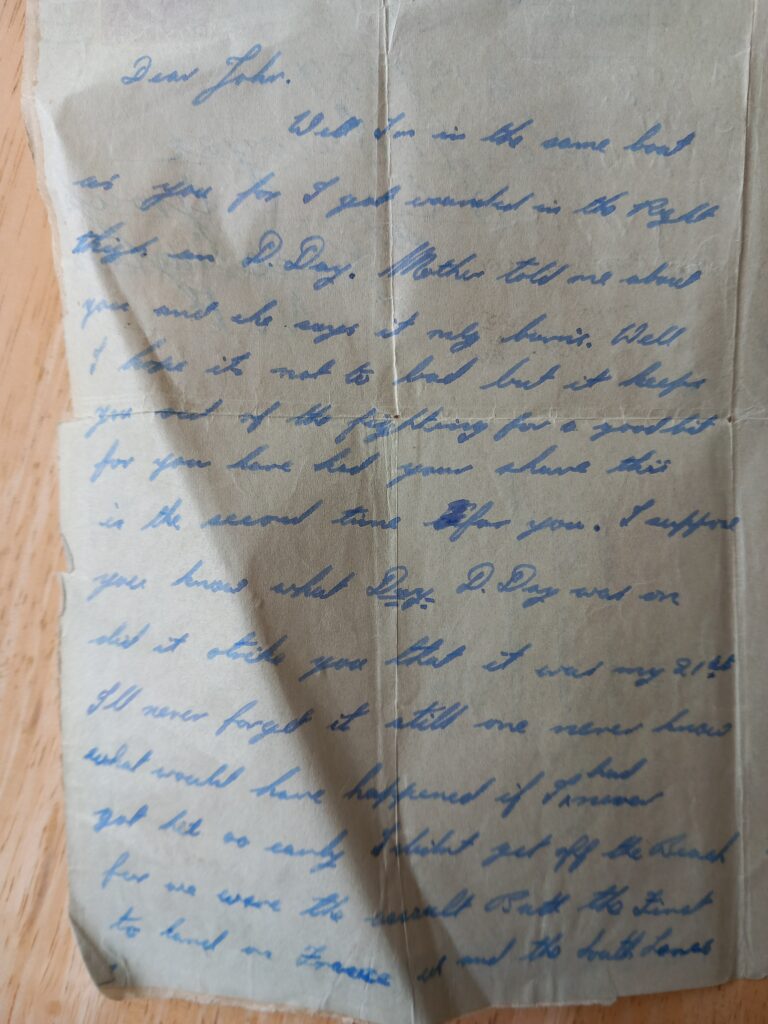 Dear John.
Well I'm in the same boat
as you for I got wounded in the Right
thigh on D.Day. Mother told me about
you and she says it only burns. Well
I hope its not to bad but it keeps
you out of the fighting for a good bit
for you have had your share this
is the second time for you. I suppose
you know what Day D.Day was on
did it strike you that it was my 21st
I'll never forget it still one never know
what would have happened if I had never
got hit so early I didnt get off the Beach
for we were the assault Batt the First
to land in France us and the South Lancs